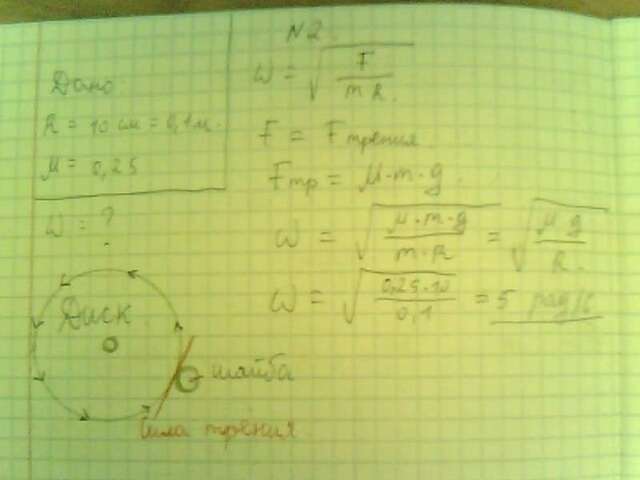 N2.
Дано
R = 10 см = 0,1 м.
μ = 0,25
ω = ?
ω = √(F / m R.)
F = Fтрения.
Fтр = μ·m·g.
ω = √(μ·m·g / m·R) = √(μ g / R.)
ω = √(0,25·10 / 0,1) = 5 рад/с
Диск
шайба
сила трения